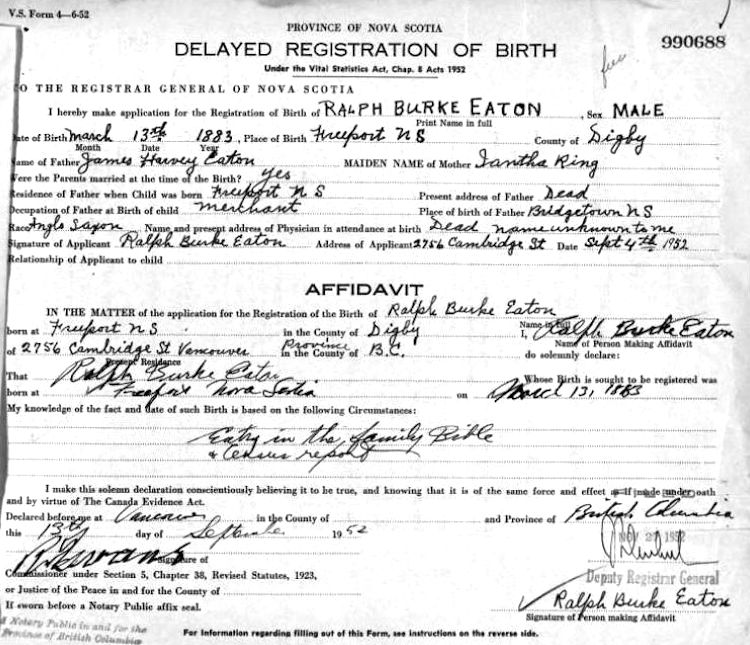 V.S. Form 4—6-52
PROVINCE OF NOVA SCOTIA
DELAYED REGISTRATION OF BIRTH
990688
Under the Vital Statistics Act, Chap. 8 Acts 1952
TO THE REGISTRAR GENERAL OF NOVA SCOTIA
I hereby make application for the Registration of Birth of RALPH BURKE EATON, Sex MALE
Print Name in full
Date of Birth March 13th 1883, Place of Birth Freeport NS County of Digby
Month Date Year
Name of Father James Harvey Eaton MAIDEN NAME of Mother Iantha Ring
Were the Parents married at the time of the Birth? Yes
Residence of Father when Child was born Freeport N S Present address of Father Dead
Occupation of Father at Birth of child merchant Place of birth of Father Bridgetown NS
Race Anglo Saxon Name and present address of Physician in attendance at birth Dead name unknown to me
Signature of Applicant Ralph Burke Eaton Address of Applicant 2756 Cambridge St Date Sept 4th 1952
Relationship of Applicant to child
AFFIDAVIT
IN THE MATTER of the application for the Registration of the Birth of Ralph Burke Eaton
born at Freeport N S in the County of Digby Name in full I, Ralph Burke Eaton
Name of Person Making Affidavit
of 2756 Cambridge St Vancouver Province in the County of B.C. do solemnly declare:
Present Residence
That Ralph Burke Eaton Whose Birth is sought to be registered was
born at Freeport Nova Scotia on March 13, 1883
My knowledge of the fact and date of such Birth is based on the following Circumstances:
Entry in the family Bible
& Census report
I make this solemn declaration conscientiously believing it to be true, and knowing that it is of the same force and effect as if made under oath
and by virtue of The Canada Evidence Act.
Declared before me at Vancouver in the County of and Province of British Columbia
this 13th day of September 1952
NOV 27 1952
Signature of
Commissioner under Section 5, Chapter 38, Revised Statutes, 1923,
Deputy Registrar General
or Justice of the Peace in and for the County of
Ralph Burke Eaton
If sworn before a Notary Public affix seal.
Signature of Person making Affidavit
A Notary Public in and for the
Province of British Columbia
For Information regarding filling out of this Form, see instructions on the reverse side.